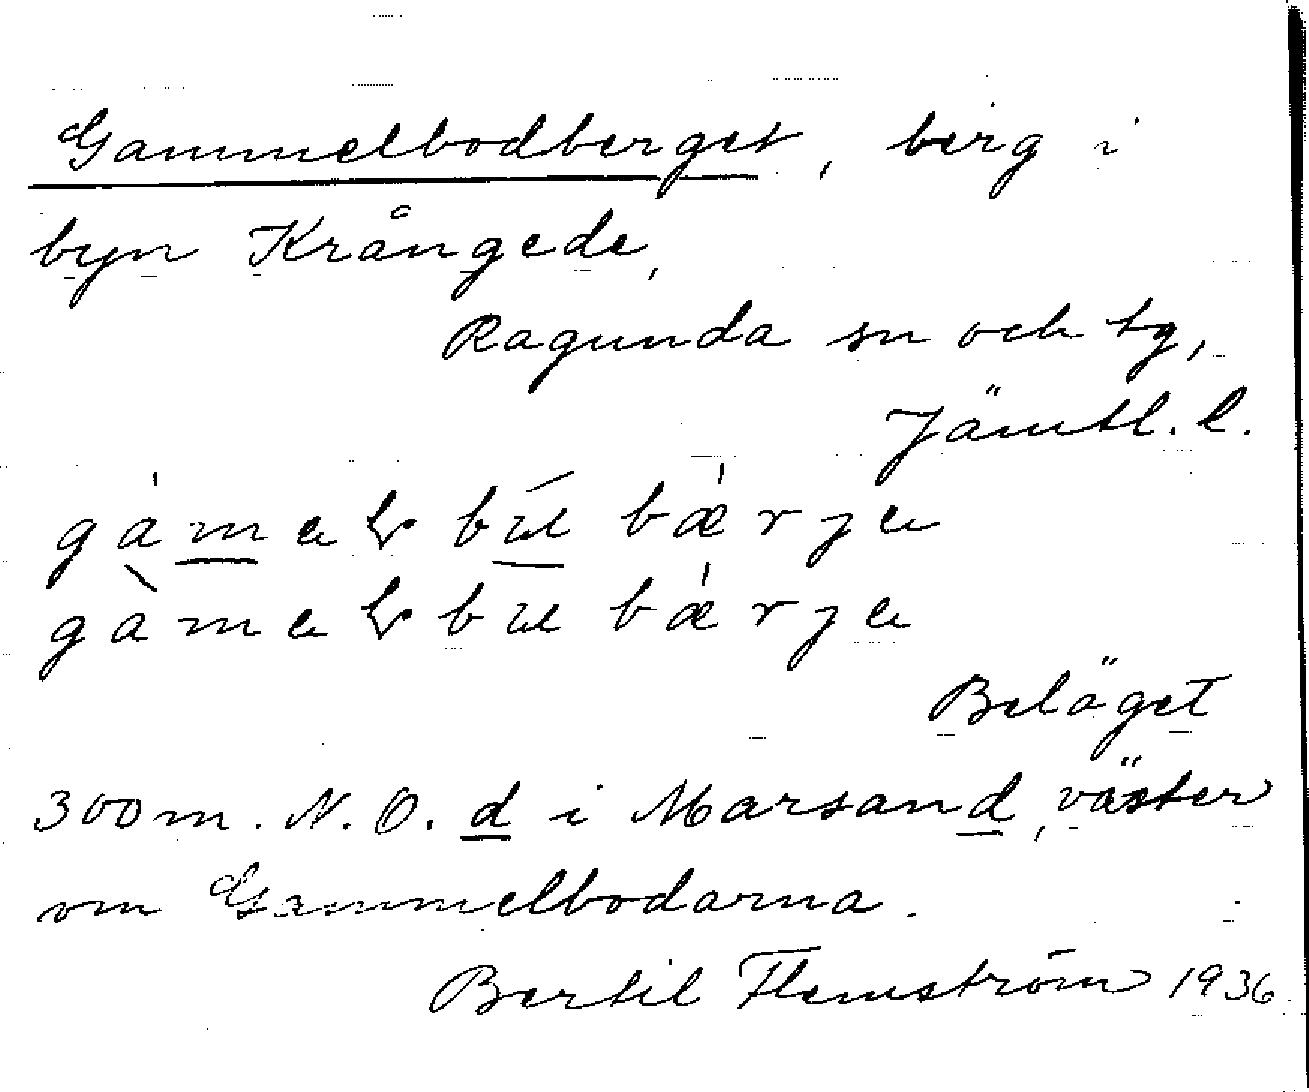 Gammelbodberget, berg i
byn Krångede,
Ragunda sn och tg,
Jämtl. l.
Beläget
300 m. N.O. d i Marsand, väster
om Gammelbodarna.
Bertil Flemström 1936